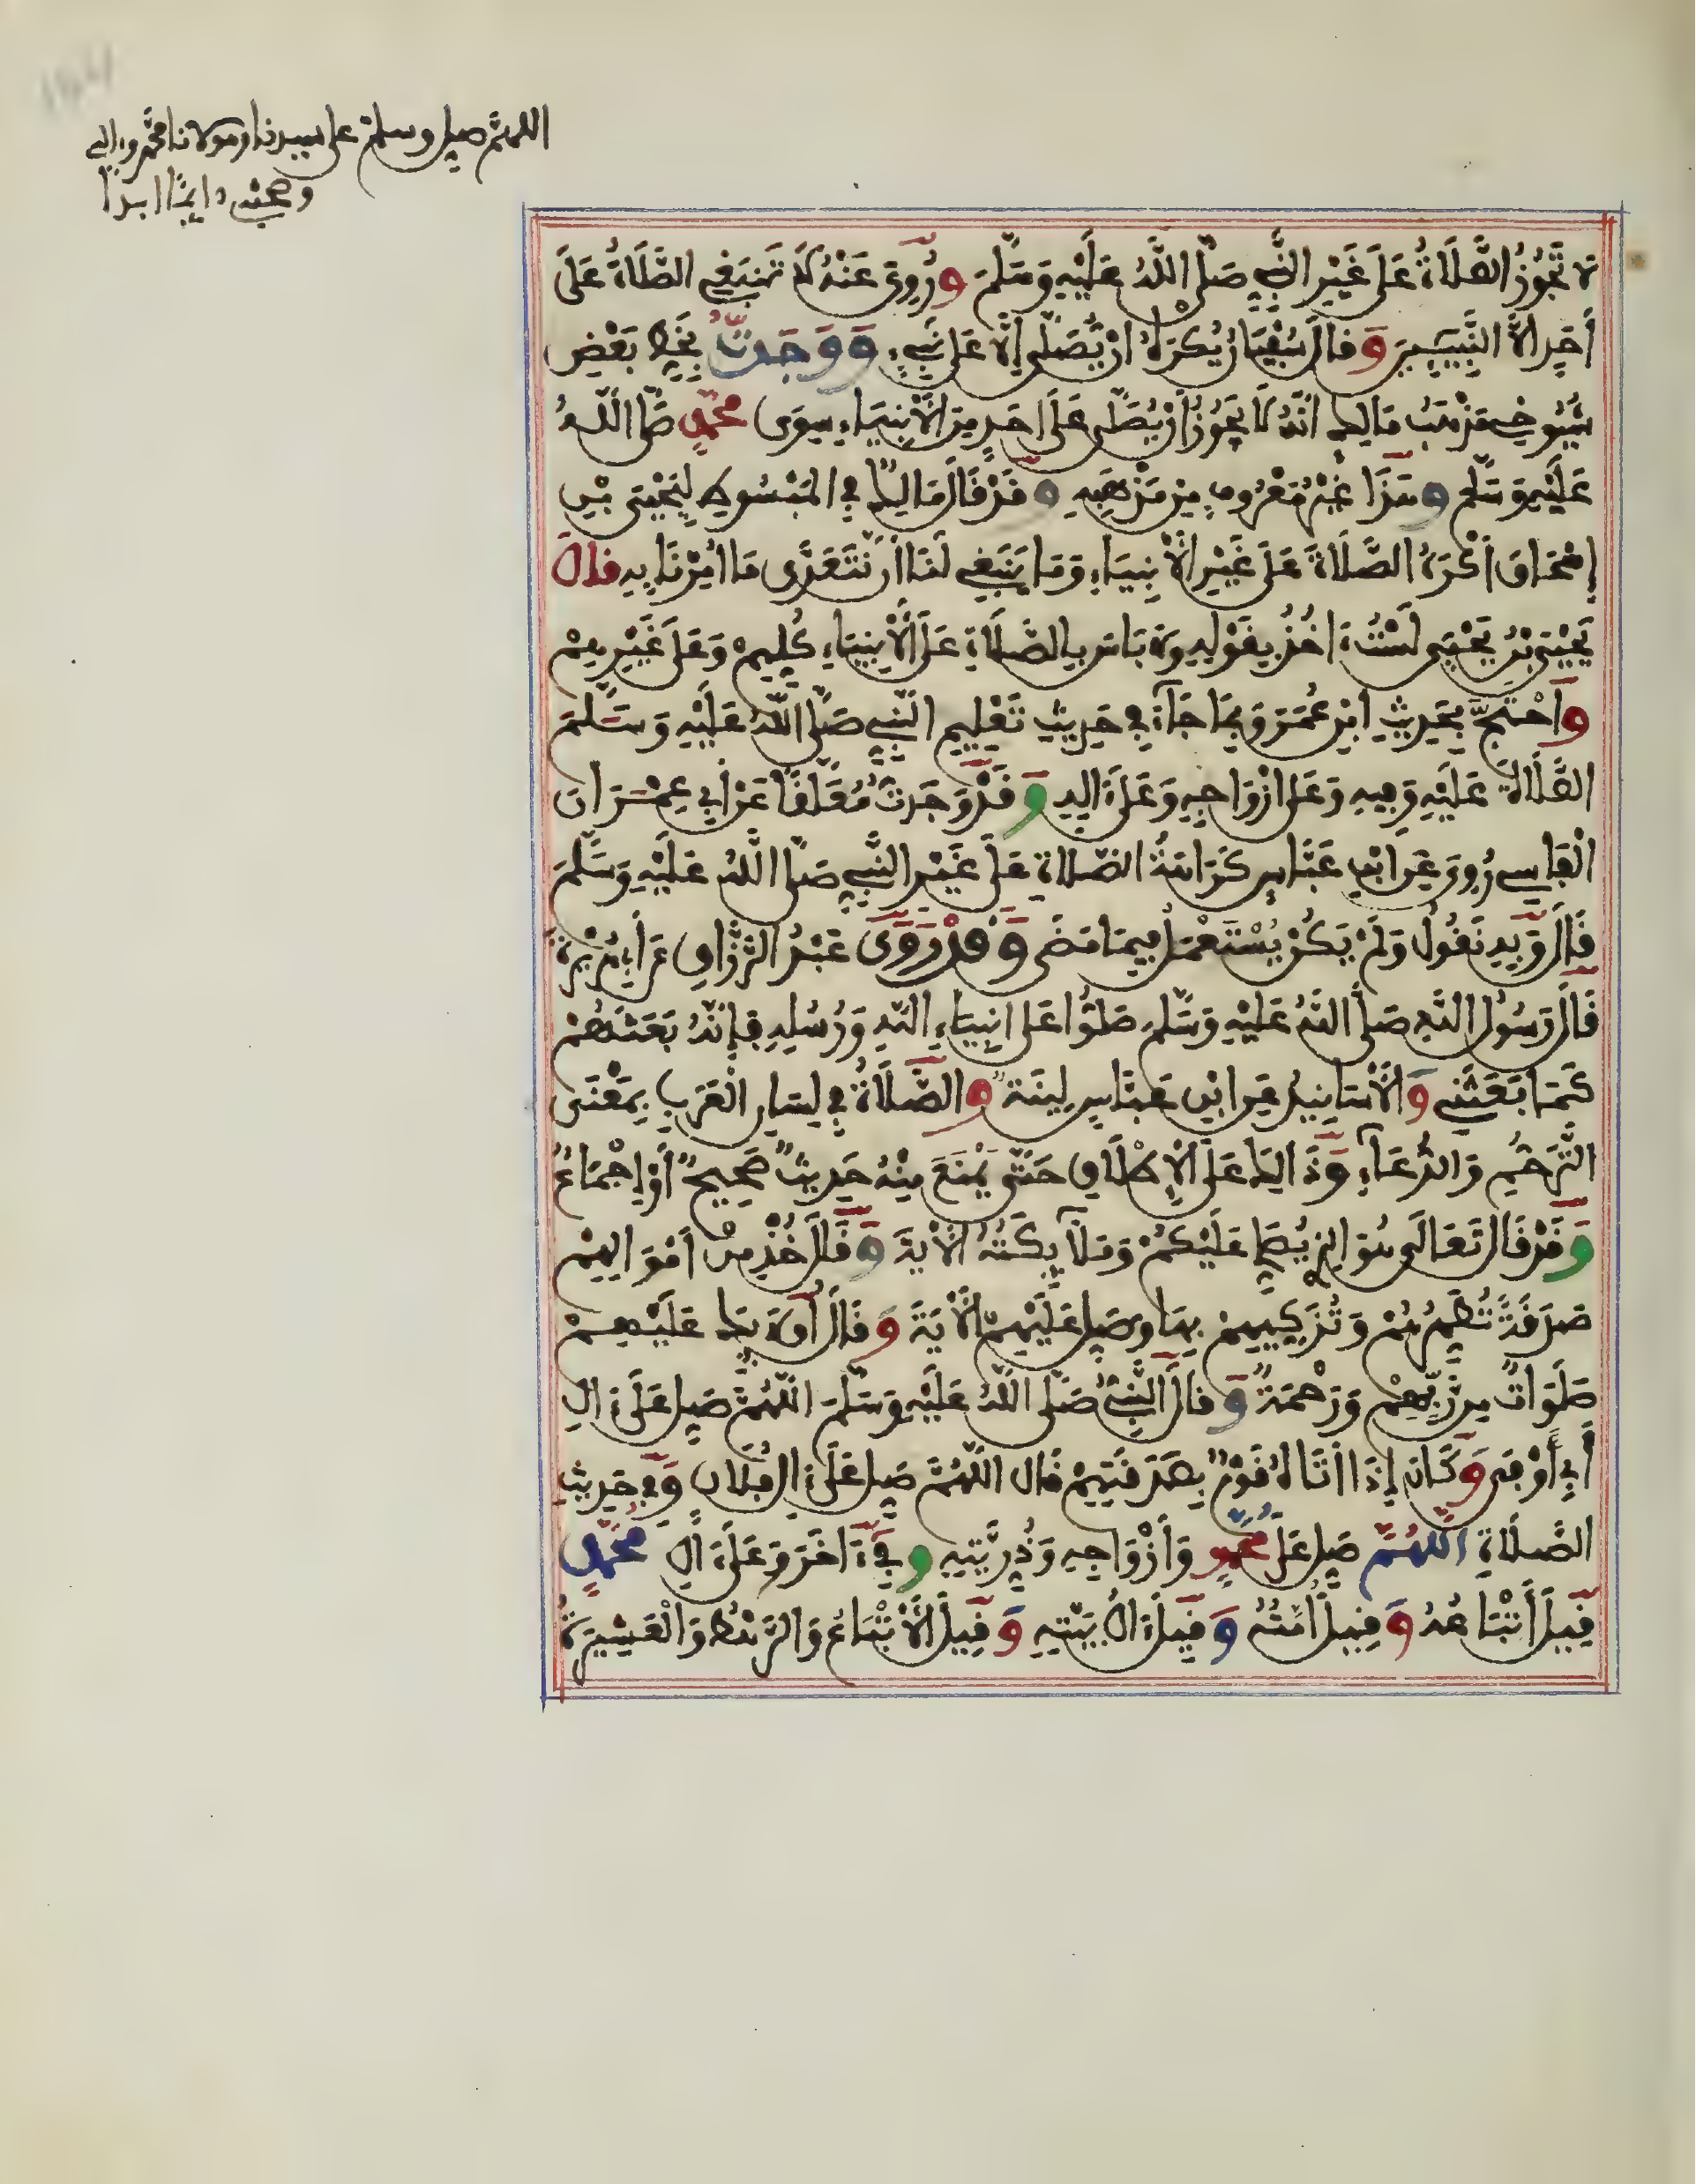 اللهم صل وسلم على سيدنا ومولانا محمد وءاله
وصحبه دايما ابدا
لَا تَجُوزُ الصَّلَاةُ عَلَى غَيْرِ النَّبِيِّ صَلَّى اللَّهُ عَلَيْهِ وَسَلَّمَ وَرُوِيَ عَنْهُ لَا تَنبَغِي الصَّلَاةُ عَلَى
أَحَدٍ إِلَّا النَّبِيِّينَ وَقَالَ سُفْيَانُ يُكْرَهُ أَنْ يُصَلَّى إِلَّا عَلَى نَبِيٍّ وَوَجَدتُّ بِخَطِّ بَعْضِ
شُيُوخِي مَذْهَبُ مَالِكٍ أَنَّهُ لَا يَجُوزُ أَنْ يُصَلَّى عَلَى أَحَدٍ مِنَ الْأَنْبِيَاءِ سِوَى مُحَمَّدٍ صَلَّى اللَّهُ
عَلَيْهِ وَسَلَّمَ وَهَذَا غَيْرُ مَعْرُوفٍ مِنْ مَذْهَبِهِ وَقَدْ قَالَ مَالِكٌ فِي الْمَبْسُوطِ لِيَحْيَى بْنِ
إِسْحَاقَ أَكْرَهُ الصَّلَاةَ عَلَى غَيْرِ الْأَنْبِيَاءِ وَمَا يَنْبَغِي لَنَا أَنْ نَتَعَدَّى مَا أُمِرْنَا بِهِ قَالَ
يَحْيَى بْنُ يَحْيَى لَسْتُ ءَاخُذُ بِقَوْلِهِ وَلَا بَأْسَ بِالصَّلَاةِ عَلَى الْأَنْبِيَاءِ كُلِّهِمْ وَعَلَى غَيْرِهِمْ
وَاحْتَجَّ بِحَدِيثِ ابْنِ عُمَرَ وَبِمَا جَاءَ فِي حَدِيثِ تَعْلِيمِ النَّبِيِّ صَلَّى اللَّهُ عَلَيْهِ وَسَلَّمَ
الصَّلَاةَ عَلَيْهِ وَفِيهِ وَعَلَى أَزْوَاجِهِ وَعَلَى ءَالِهِ وَقَدْ وَجَدتُّ مُعَلَّقًا عَنْ أَبِي عِمْرَانَ
الْفَاسِي رُوِيَ عَنِ ابْنِ عَبَّاسٍ كَرَاهَةُ الصَّلَاةِ عَلَى غَيْرِ النَّبِيِّ صَلَّى اللَّهُ عَلَيْهِ وَسَلَّمَ
قَالَ وَبِهِ نَقُولُ وَلَمْ يَكُنْ يُسْتَعْمَلُ فِيمَا مَضَى وَقَدْ رَوَى عَبْدُ الرَّزَّاقِ عَنْ أَبِي هُرَيْرَةَ
قَالَ رَسُولُ اللَّهِ صَلَّى اللَّهُ عَلَيْهِ وَسَلَّمَ صَلُّوا عَلَى أَنْبِيَاءِ اللَّهِ وَرُسُلِهِ فَإِنَّهُ بَعَثَهُمْ
كَمَا بَعَثَنِي وَالْأَسَانِيدُ عَنِ ابْنِ عَبَّاسٍ لَيِّنَةٌ وَالصَّلَاةُ فِي لِسَانِ الْعَرَبِ بِمَعْنَى
التَّرَحُّمِ وَالدُّعَاءِ وَذَالِكَ عَلَى الْإِطْلَاقِ حَتَّى يَمْنَعَ مِنْهُ حَدِيثٌ صَحِيحٌ أَوْ إِجْمَاعٌ
وَقَدْ قَالَ تَعَالَى هُوَ الَّذِي يُصَلِّي عَلَيْكُمْ وَمَلَائِكَتُهُ الْآيَةَ وَقَالَ خُذْ مِنْ أَمْوَالِهِمْ
صَدَقَةً تُطَهِّرُهُمْ وَتُزَكِّيهِمْ بِهَا وَصَلِّ عَلَيْهِمُ الْآيَةَ وَقَالَ أُولَئِكَ عَلَيْهِمْ
صَلَوَاتٌ مِنْ رَبِّهِمْ وَرَحْمَةٌ وَقَالَ النَّبِيُّ صَلَّى اللَّهُ عَلَيْهِ وَسَلَّمَ اللَّهُمَّ صَلِّ عَلَى ءَالِ
أَبِي أَوْفَى وَكَانَ إِذَا أَتَاهُ قَوْمٌ بِصَدَقَتِهِمْ قَالَ اللَّهُمَّ صَلِّ عَلَى ءَالِ فُلَانٍ وَفِي حَدِيثِ
الصَّلَاةِ اللَّهُمَّ صَلِّ عَلَى مُحَمَّدٍ وَأَزْوَاجِهِ وَذُرِّيَّتِهِ وَفِي ءَاخَرَ وَعَلَى ءَالِ مُحَمَّدٍ
قِيلَ أَتْبَاعُهُ وَقِيلَ أُمَّتُهُ وَقِيلَ ءَالُ بَيْتِهِ وَقِيلَ الْأَتْبَاعُ وَالرَّهْطُ وَالْعَشِيرَةُ